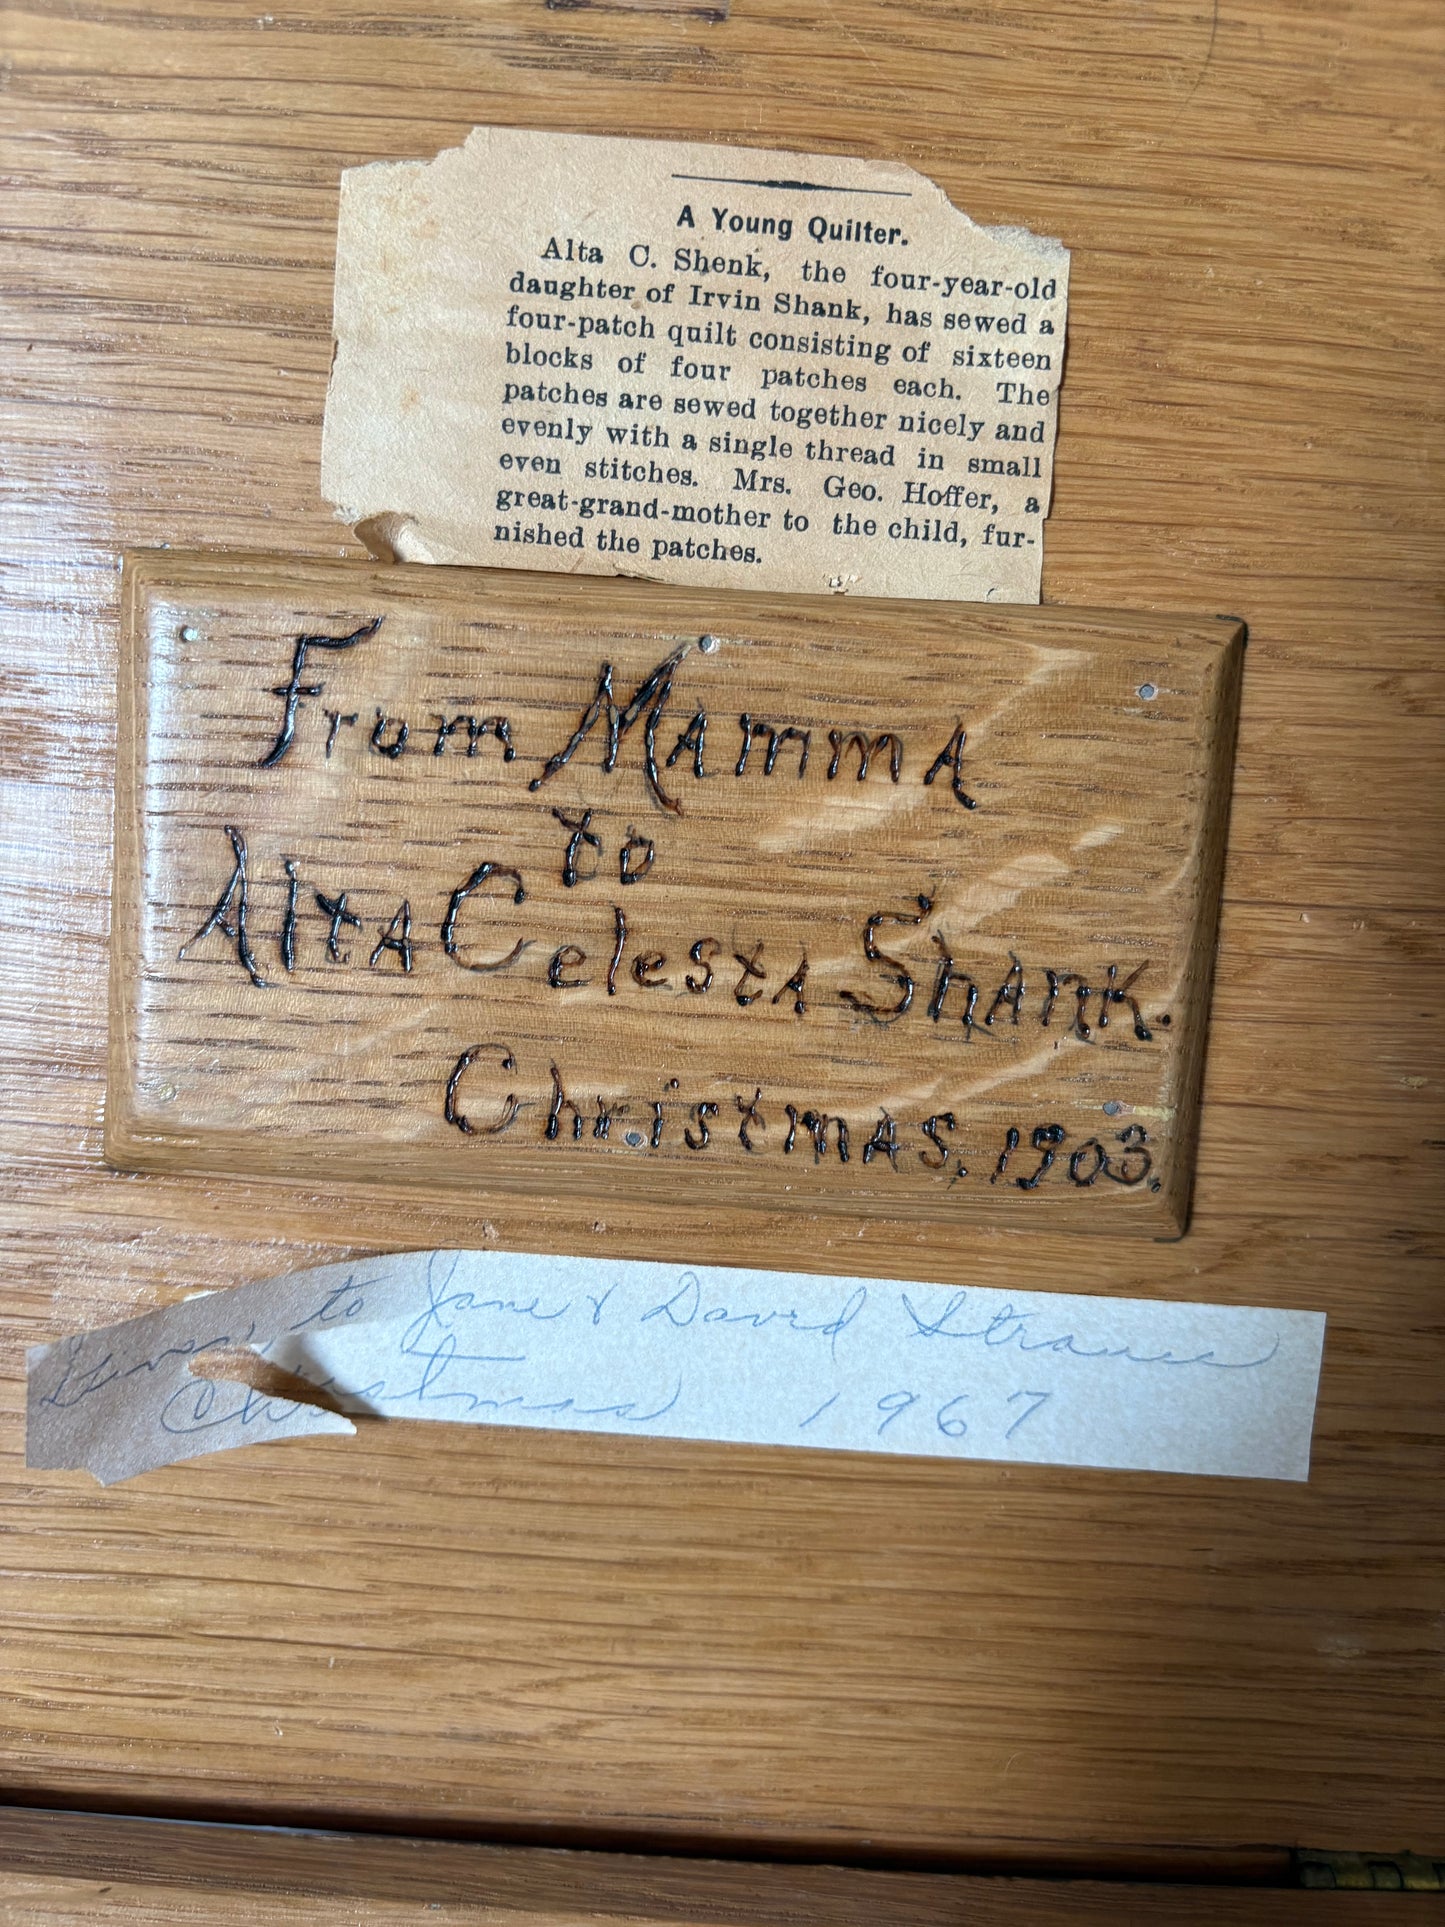 A Young Quilter.
Alta C. Shenk, the four-year-old
daughter of Irvin Shank, has sewed a
four-patch quilt consisting of sixteen
blocks of four patches each. The
patches are sewed together nicely and
evenly with a single thread in small
even stitches. Mrs. Geo. Hoffer, a
great-grand-mother to the child, fur-
nished the patches.
From Mamma
to
Alta Celesta Shank.
Christmas. 1903.
to Jane & David Strauss
Christmas 1967